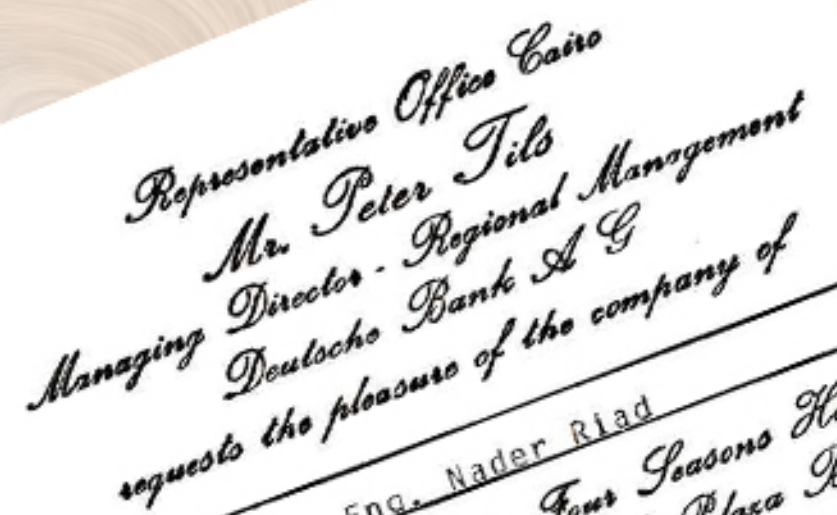 Representative Office Cairo
Mr. Peter Tils
Managing Director - Regional Management
Deutsche Bank A G
requests the pleasure of the company of
Eng. Nader Riad
Four Seasons
Plaza